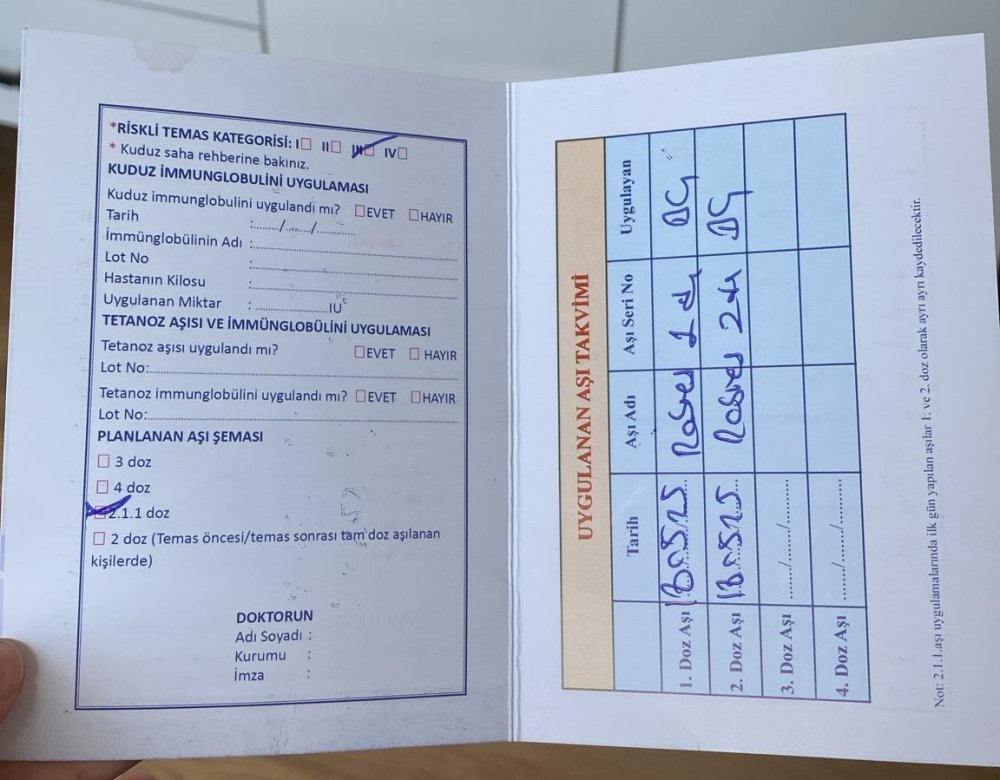 *RİSKLİ TEMAS KATEGORİSİ: I☐ II☐ III☐ IV☐
* Kuduz saha rehberine bakınız.
KUDUZ İMMUNGLOBULİNİ UYGULAMASI
Kuduz immunglobulini uygulandı mı? ☐EVET ☐HAYIR
Tarih :....../....../............
İmmünglobülinin Adı :............................
Lot No :............................
Hastanın Kilosu :............................
Uygulanan Miktar :......................IU
TETANOZ AŞISI VE İMMÜNGLOBÜLİNİ UYGULAMASI
Tetanoz aşısı uygulandı mı? ☐EVET ☐ HAYIR
Lot No:............................
Tetanoz immunglobülini uygulandı mı? ☐EVET ☐HAYIR
Lot No:............................
PLANLANAN AŞI ŞEMASI
☐ 3 doz
☐ 4 doz
☐ 2.1.1 doz
☐ 2 doz (Temas öncesi/temas sonrası tam doz aşılanan
kişilerde)
DOKTORUN
Adı Soyadı :
Kurumu :
İmza :
UYGULANAN AŞI TAKVİMİ
Tarih Aşı Adı Aşı Seri No Uygulayan
1. Doz Aşı
2. Doz Aşı
3. Doz Aşı ....../....../............
4. Doz Aşı ....../....../............
Not: 2.1.1.aşı uygulamalarında ilk gün yapılan aşılar 1. ve 2. doz olarak ayrı ayrı kaydedilecektir.